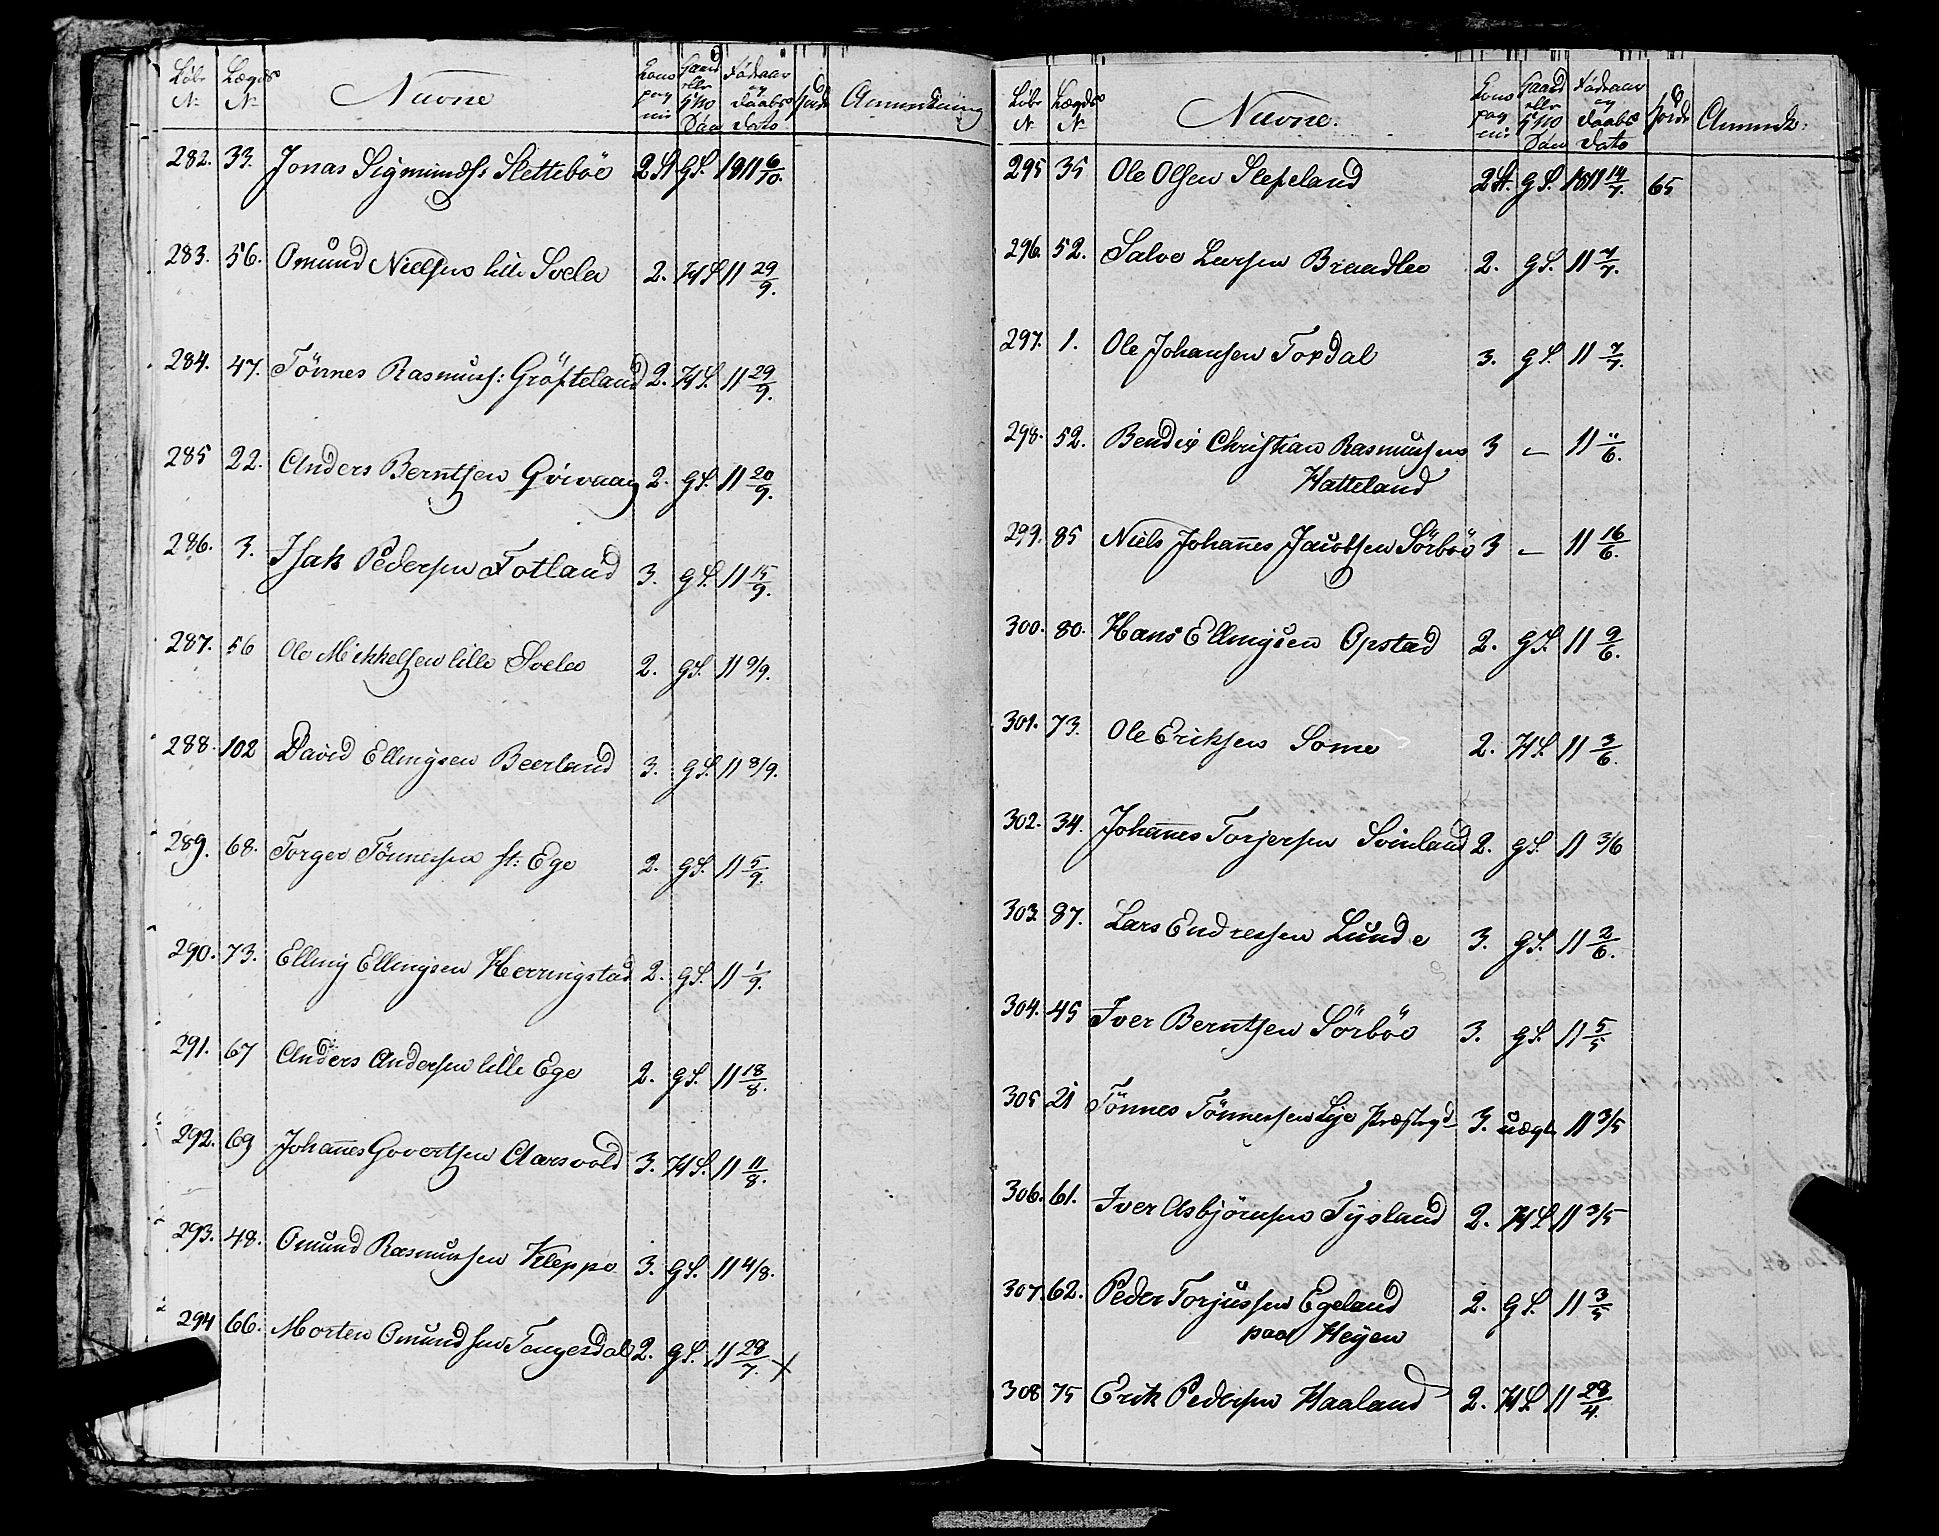 Løbe Lægds Navne Com Gaard Fødeaar Høide Anmærkning
No No pag eller og
nie H Daabs
Søn dato
282. 33. Jonas Sigmunds: Sletteböe 2 St GS. 1811 6/10.
283. 56. Omund Nielsen lille Svela 2. HS 11 29/9.
284. 47. Tönnes Rasmuss: Gröfteland 2. HS. 11 29/9.
285 22. Anders Berntsen Qvivaag 2. gS. 11 20/9.
286. 3. Isak Pedersen Totland 3. gS. 11 15/9.
287. 56 Ole Mikkelsen lille Svele 2. gS. 11 9/9.
288. 102 David Ellingsen Beerland 3. gS. 11 8/9.
289. 68. Torger Tönnesen st: Ege 2. gS. 11 5/9.
290. 73. Elling Ellingsen Herringstad 2. gS. 11 1/9.
291. 67 Anders Andersen lille Ege 2. gS. 11 18/8.
292. 69 Johannes Govertsen Aarsvold 3. HS. 11 11/8.
293. 48. Omund Rasmussen Kleppe 3. gS. 11 4/8.
294 66. Morten Omundsen Tengesdal 2. gS. 11 28/7. x
Løbe Lægds Navne. Com Gaard Fødeaar Høide Anmerk:
No No pag eller og
nie H Daabs
Søn dato
295 35 Ole Olsen Slepeland 2 St. gS. 1811 14/7. 65
296. 52. Salve Larsen Braadlie 2. gS. 11 7/7.
297. 1. Ole Johansen Tordal 3. gS. 11 7/7.
298. 52. Bendix Christian Rasmussen 3 — 11 "/6.
Hatteland
299. 85 Niels Johannes Jacobsen Sörböe 3 — 11 16/6.
300. 80. Hans Ellingsen Opstad 2. gS. 11 9/6.
301. 73. Ole Eriksen Some 2. HS. 11 3/6.
302. 34. Johannes Torjersen Svinland 2. gS. 11 3/6
303. 87. Lars Endresen Lunde 3. gS. 11 2/6.
304. 45 Iver Berntsen Sörböe 3. gS. 11 5/5.
305 21 Tönnes Tönnesen Lye Præstegd 3. uægte 11 3/5
306. 61. Iver Asbjörnsen Tysland 2. HS 11 3/5
307. 62. Peder Torjussen Egeland 2. gS. 11 3/5
paa Heyen
308 75 Erik Pedersen Haaland 2. HS. 11 28/4.